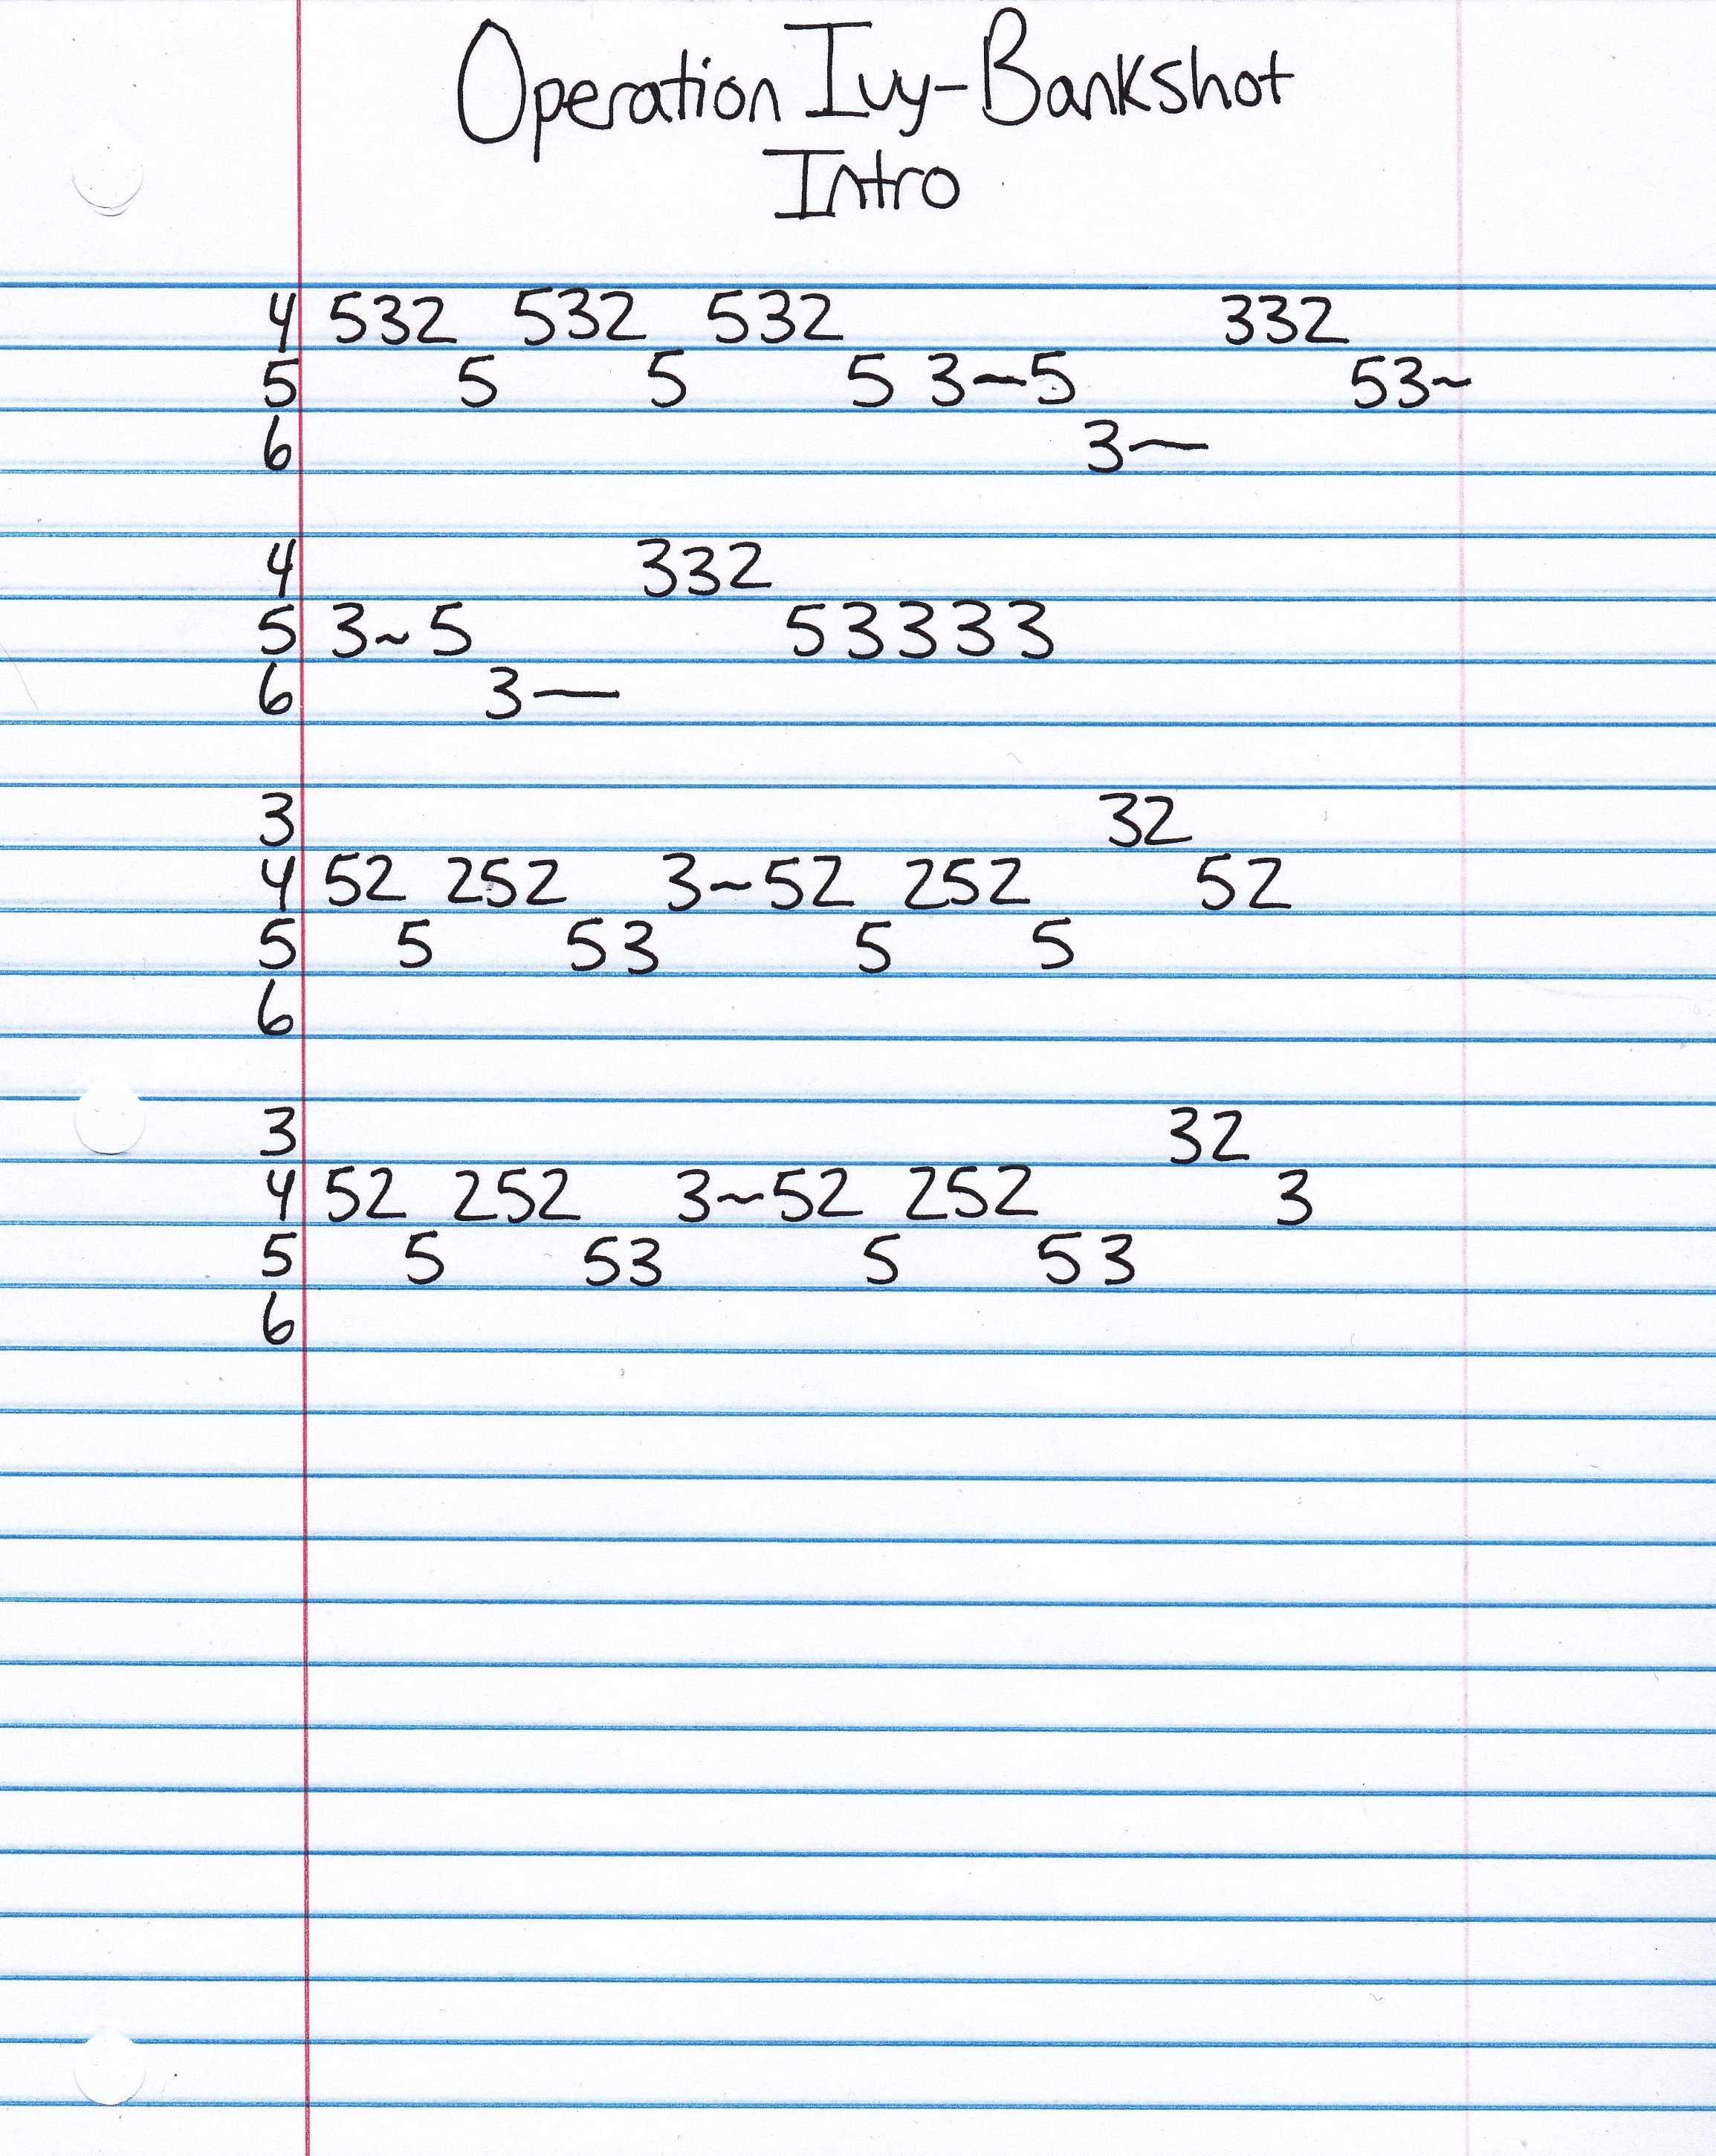 Operation Ivy-Bankshot
Intro
4 532 532 532 332
5 5 5 5 3~5 53~
6 3—
4 332
5 3~5 53333
6 3—
3 32
4 52 252 3~52 252 52
5 5 53 5 5
6
3 32
4 52 252 3~52 252 3
5 5 53 5 53
6